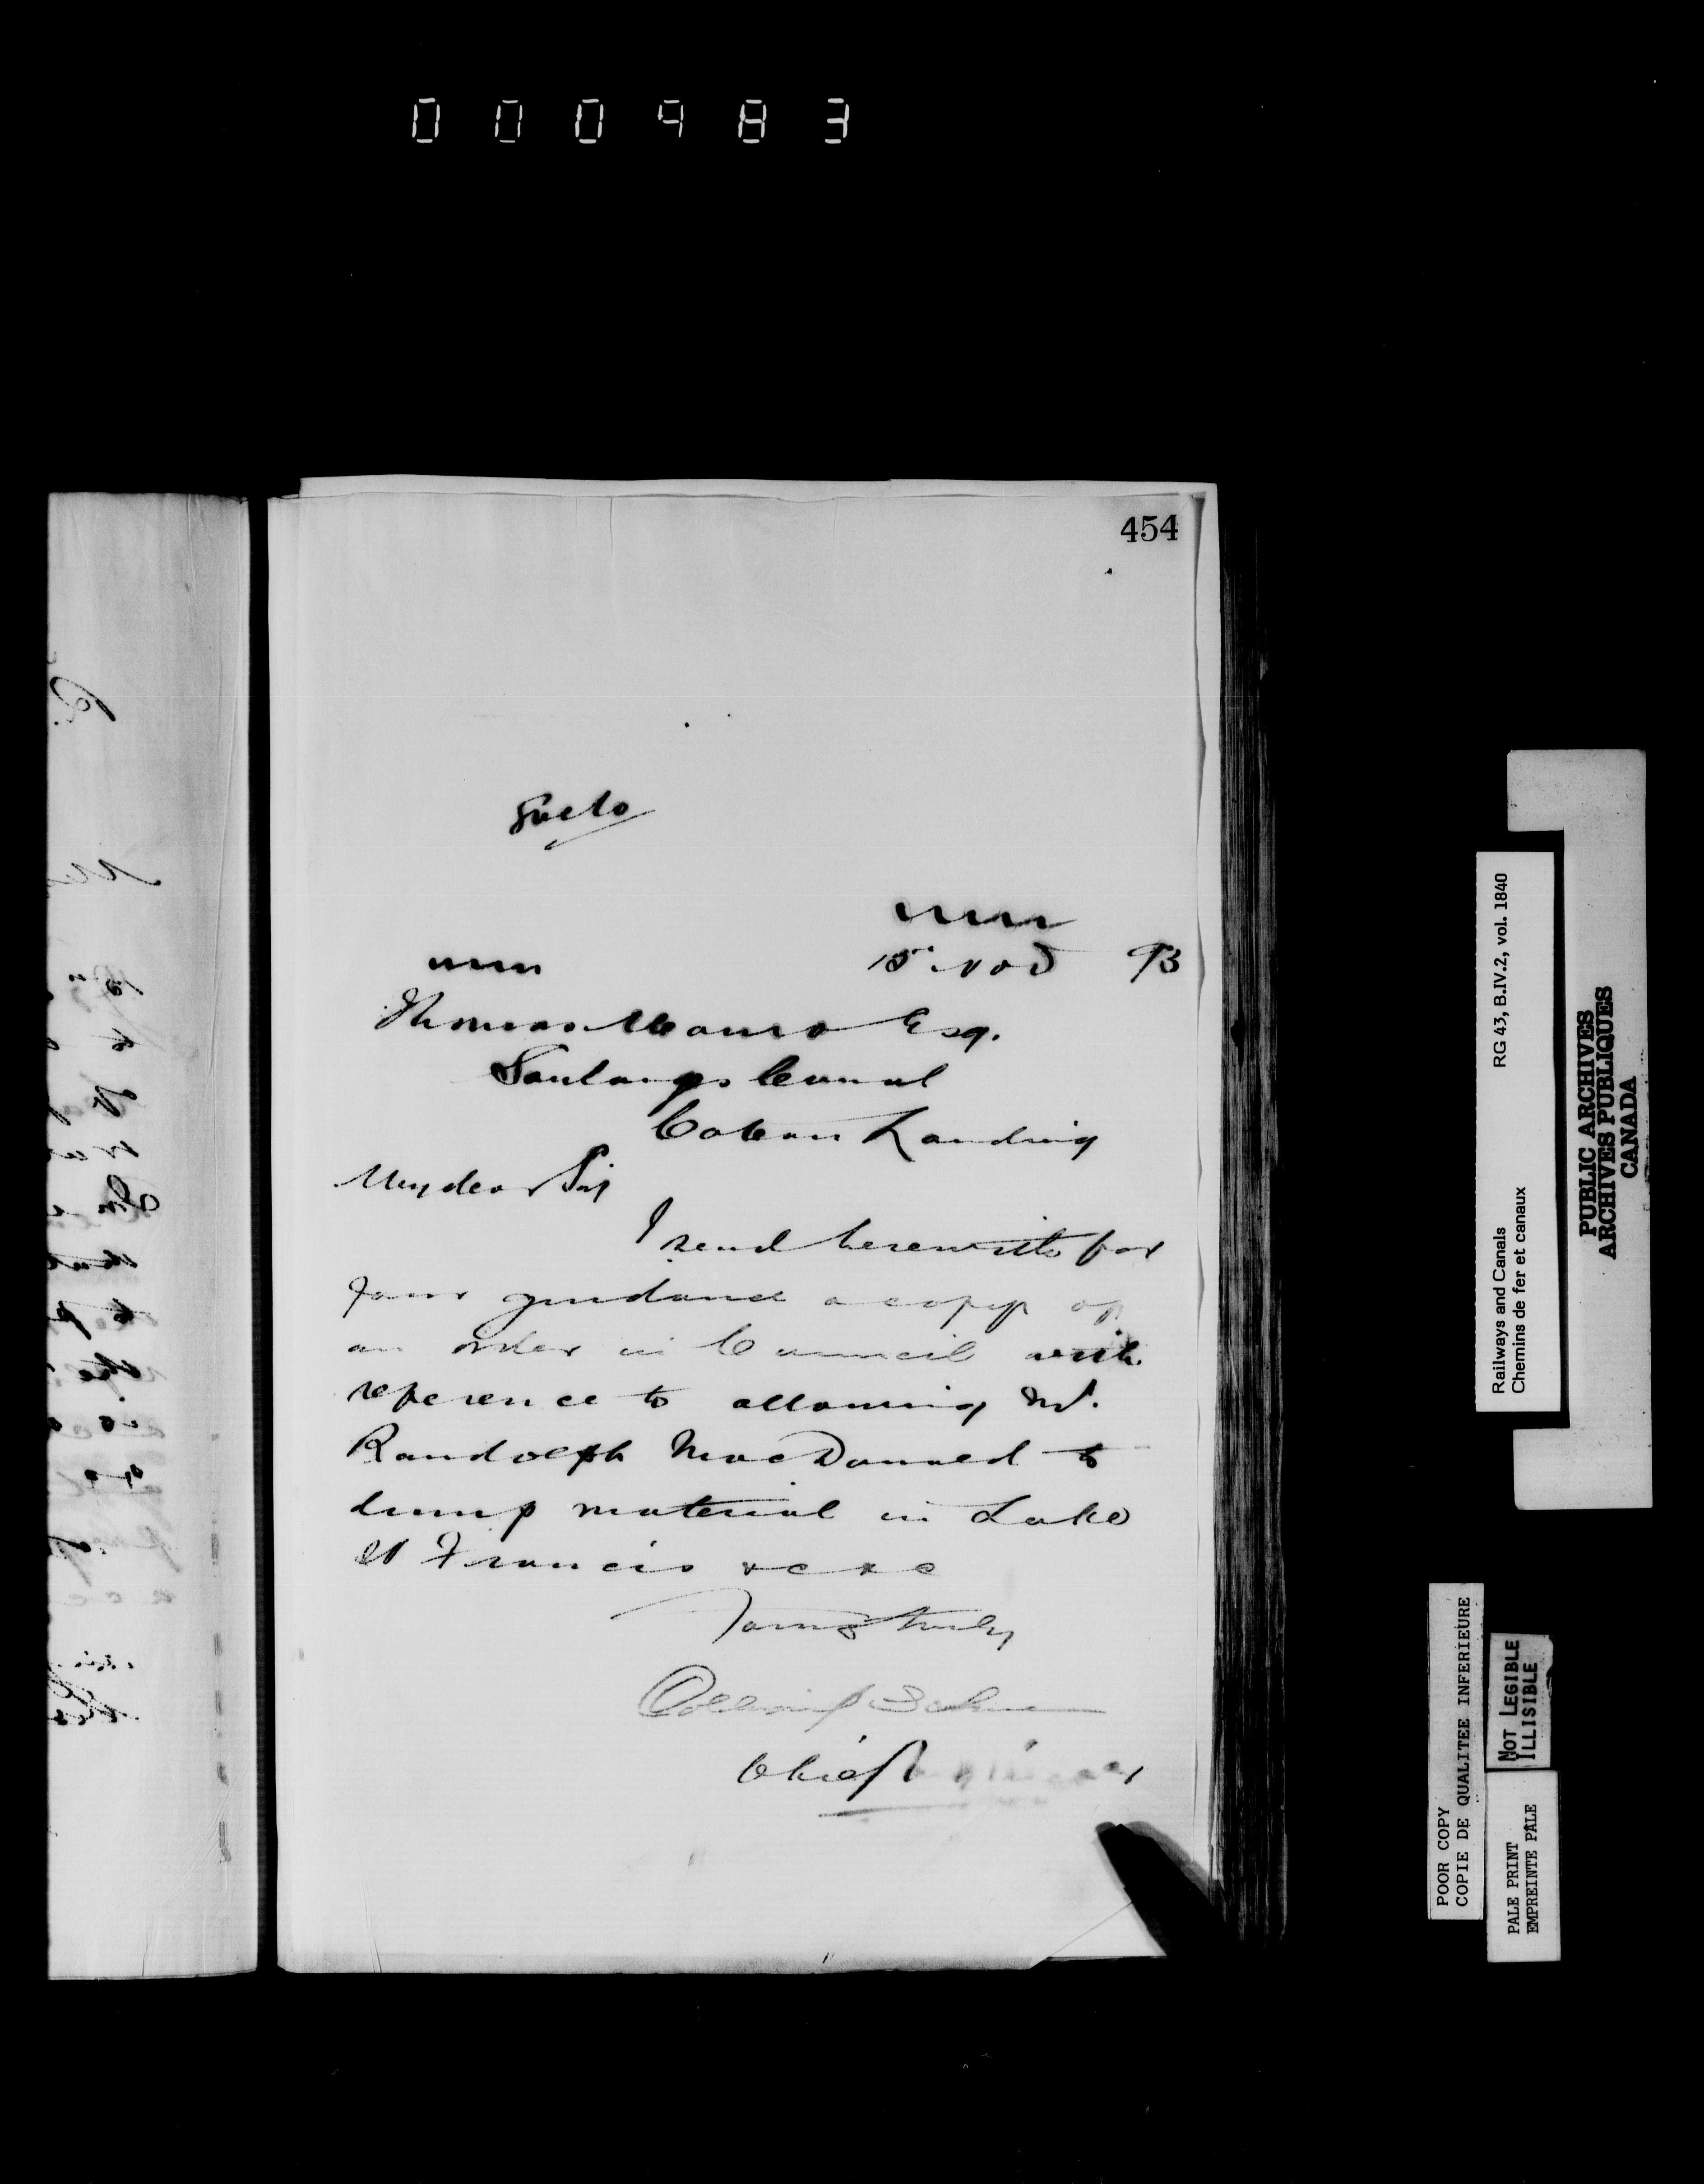 000983
454
Enclo
15 Nov 93
Thomas Monro Esq.
Soulanges Canal
Coteau Landing
My dear Sir
I send herewith for
your guidance a copy of
an order in Council with
reference to allowing Mr.
Randolph MacDonald to
dump material in Lake
St Francis &c &c
Yours truly
Collingwood Schreiber
Chief Engineer
RG 43, B.IV.2, vol. 1840
Railways and Canals
Chemins de fer et canaux
PUBLIC ARCHIVES
ARCHIVES PUBLIQUES
CANADA
POOR COPY
COPIE DE QUALITEE INFERIEURE
NOT LEGIBLE
ILLISIBLE
PALE PRINT
EMPREINTE PALE